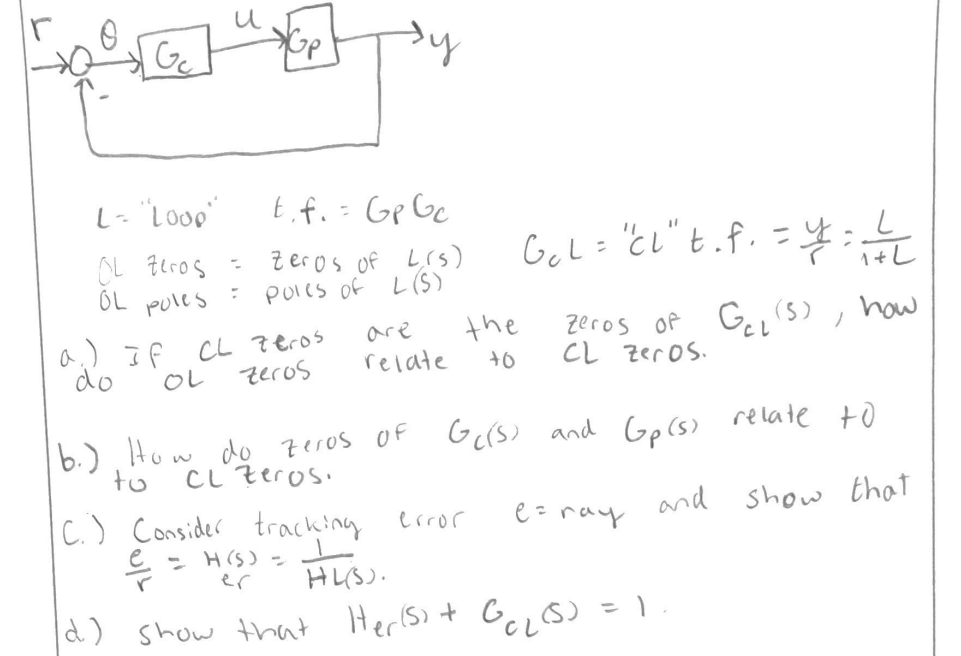 r θ Gc u Gp y
-
L = "Loop" t.f. = GpGc
OL zeros = zeros of L(s)
OL poles = poles of L(s)
GcL = "CL" t.f. = y/r = L/1+L
a.) If CL zeros are the zeros of GcL(s), how
do OL zeros relate to CL zeros.
b.) How do zeros of Gc(s) and Gp(s) relate to
to CL zeros.
C.) Consider tracking error e=ray and show that
e/r = H(s)er = 1/HL(s).
d.) show that Her(s) + GCL(s) = 1.